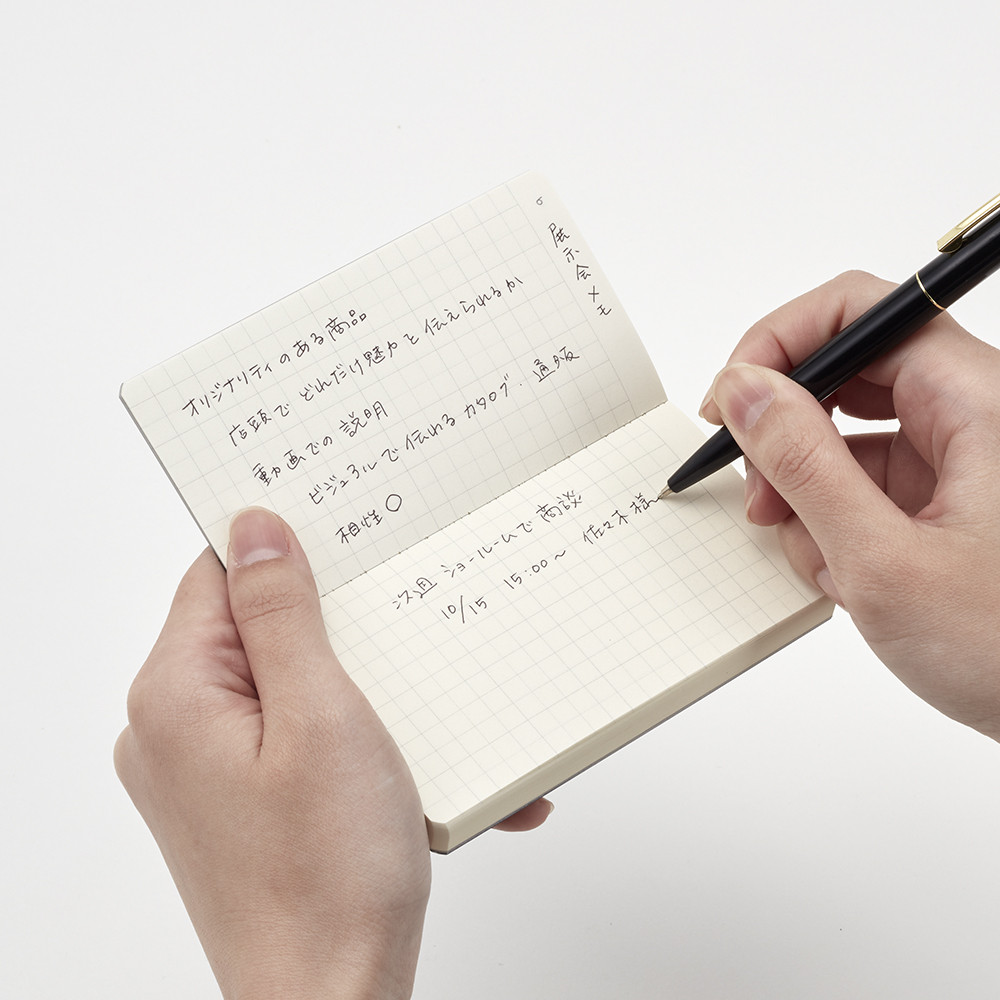 展示会メモ
オリジナリティのある商品
店頭で どれだけ魅力を伝えられるか
動画での説明
ビジュアルで伝わるカタログ・通販
相性○
次週 ショールームで商談
10/15 15:00〜 佐々木様